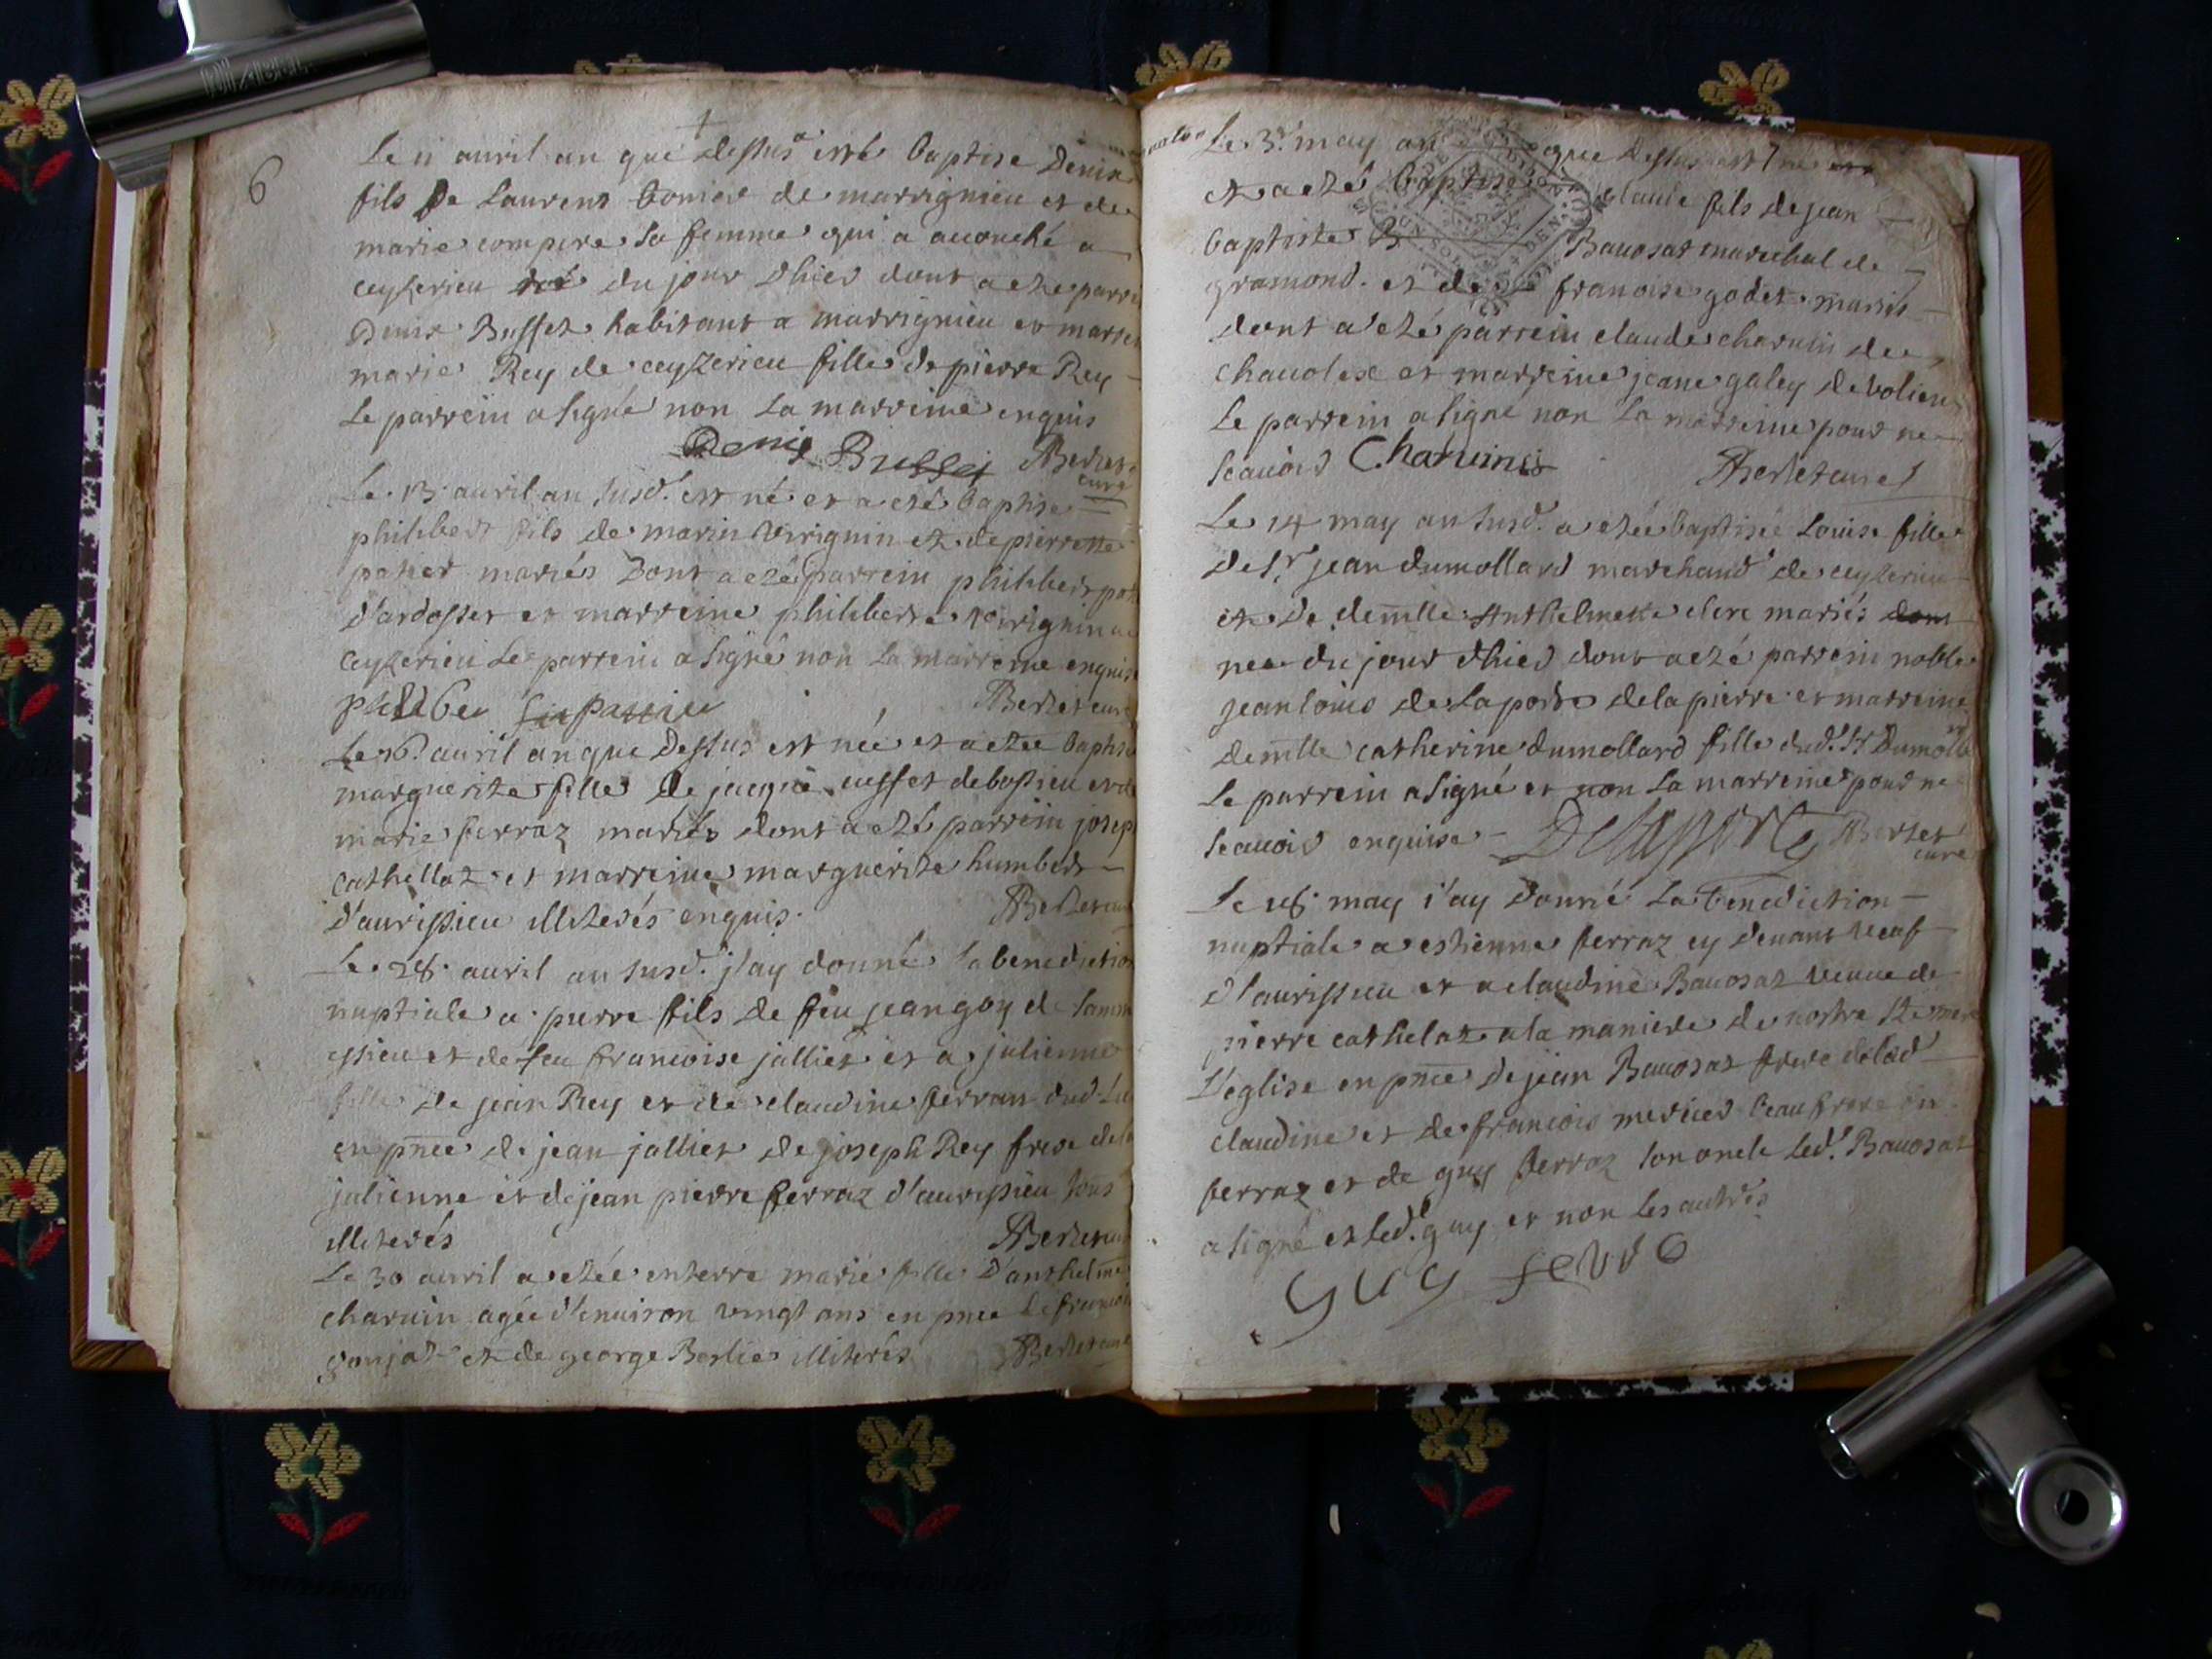 6
Le 11 auril an que dessus a esté baptise Denis
fils De Laurens bonier de marrignieu et de
marie compere sa femme qui a acouché a
ceyzerieu du jour dhier dont a eté parr
Denis Busset habitant a marrignieu et marre
marie Rey de ceyzerieu fille de pierre Rey
Le parrein a signé non La marreine enquis
Denis Bussei Berlet curé
Le 13 auril an susd. est né et a eté baptise
philibert fils de marin Virignin et de pierrette
patier mariés Dont a eté parrein philibert
d'ardosset et marreine philiberte Virignin
ceyzerieu Le parrein a signé non La marreine enquise
Berlet curé
Le 16 auril an que Dessus est née et a etée baptise
marguerite fille De jacque cusset de bossieu et de
marie ferraz mariés dont a eté parrein josep
cathellaz et marreine marguerite humbert
d'aurissieu illiterés enquis. Berlet cur
Le 28 auril an susd. j'ay donné la benediction
nuptiale a pierre fils de feu jean goy de
essieu et de feu francoise jallier et a julienne
fille de jean Rey et de claudine ferran dud.
en pnce de jean jallier de joseph Rey frere de la
julienne et de jean pierre ferraz d'aurissieu tous
illiterés Berlet cur
Le 30 auril a etée enterre marie fille D'anthelme
charuin agée d'enuiron vingt ans en pnce de francois
gonjat et de george Berlie illiterés Berlet curé
Le 3e may an que Dessus est né
et a eté baptise claude fils de jean
baptiste Bauosat marechal de
gramond. et de francoise godet mariés
dont a eté parrein claude charuin de
chauolex et marreine jeane galey de volieu
Le parrein a signé non La marreine pour ne
scauoir Charuin Berlet curé
Le 14 may an susd. a etée baptisée Louise fille
de sr jean dumollard marchand de ceyzerieu
et De demlle Anthelmette clerc mariés dont
née du jour dhier dont a eté parrein noble
jean louis de Laporte de la pierre et marreine
demlle catherine dumollard fille dud. sr Dumollard
Le parrein a signé et non La marreine pour ne
scauoir enquise Delaporte Berlet
curé
Le 18 may j'ay donné La benediction
nuptiale a estienne ferraz cy deuant veaf
d'aurissieu et a claudine Bauosat veuue de
pierre cathelaz a la maniere de nostre Ste mere
L'eglise en pnce de jean Bauosat frere de lad
claudine et de francois mercier beaufrere
ferraz et de guy ferraz son oncle Led. Bauosat
a signé et led. guy et non les autres
guy fera